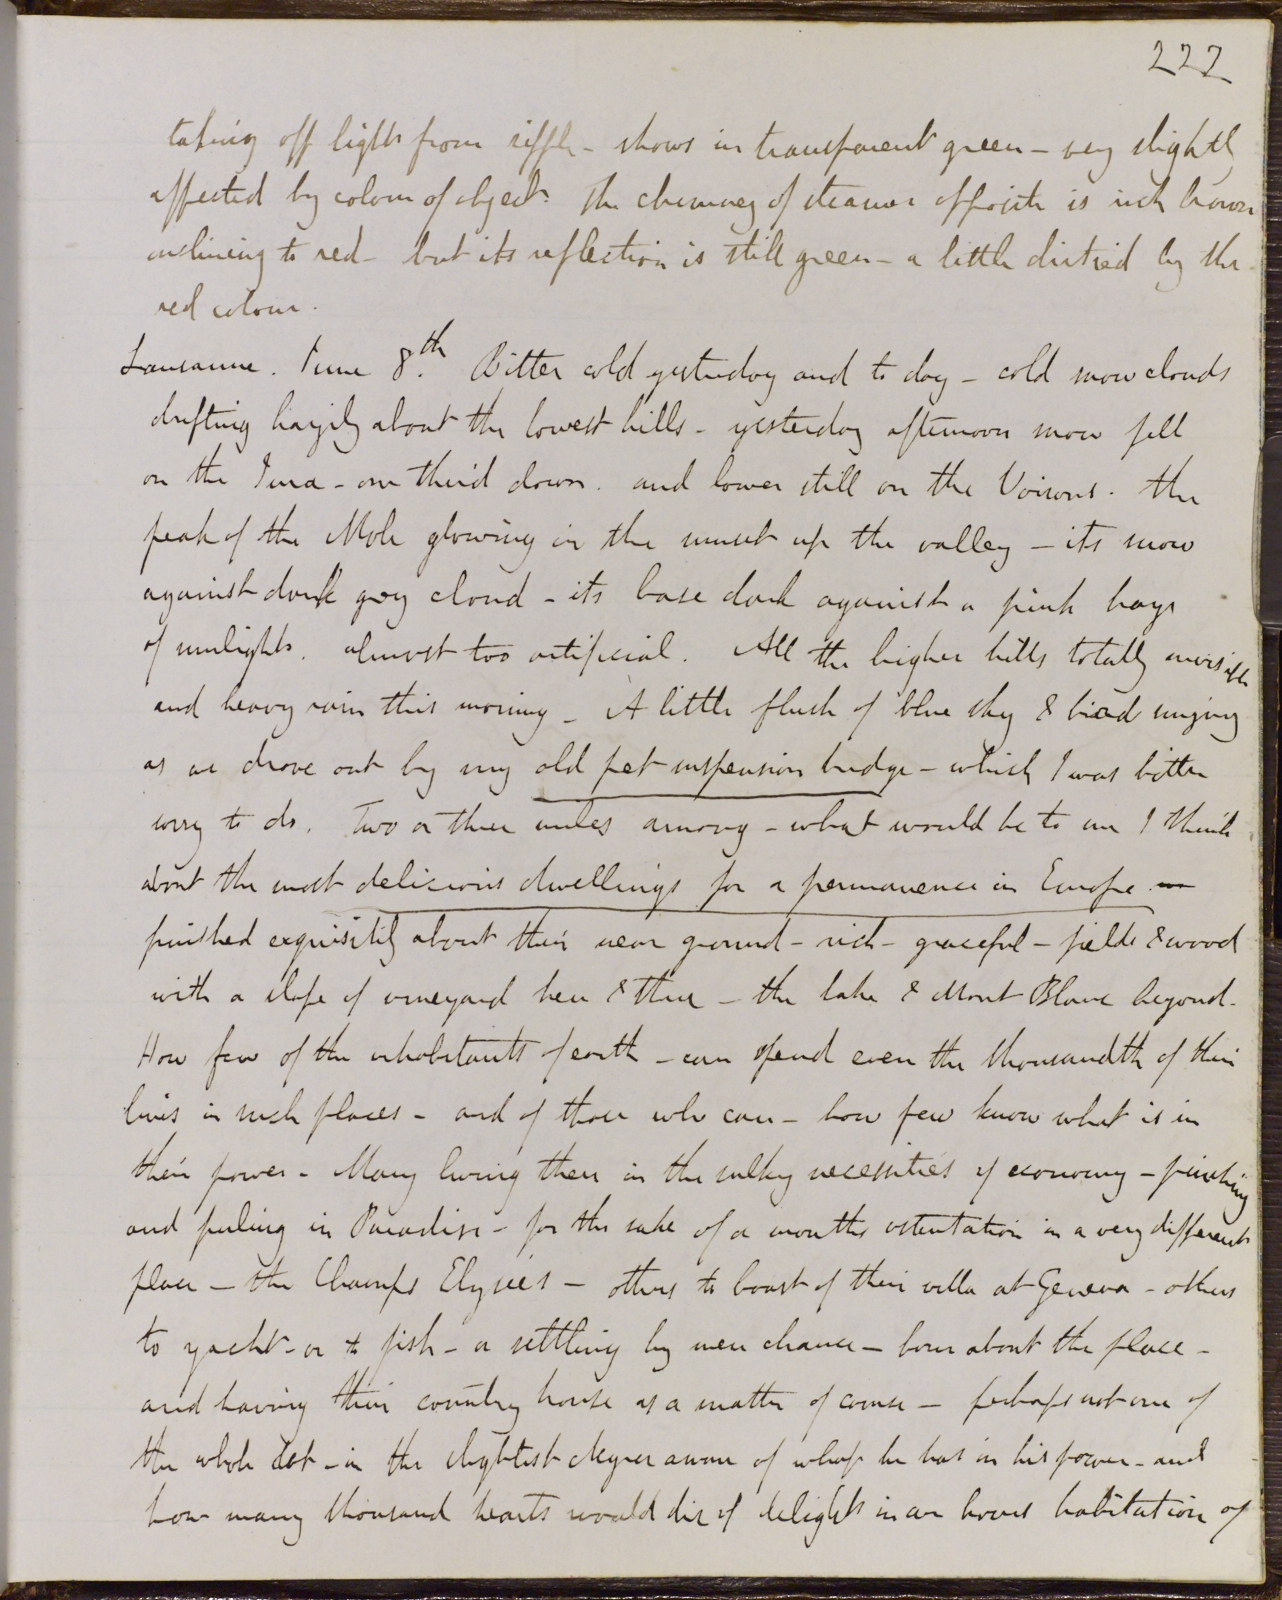 222
taking off light from ripple - shows in transparent green - very slightly
affected by colour of object. The chimney of steamer opposite is rich brown
inclining to red - but its reflection is still green - a little dirtied by the
red colour.
Lausanne. June 8.th Bitter cold yesterday and to day - cold snow clouds
drifting hazily about the lowest hills - yesterday afternoon snow fell
on the Jura - one third down. and lower still on the Voirons. the
peak of the Mole glowing in the sunset up the valley - its snow
against dark grey cloud - its base dark against a pink haze
of sunlight. almost too artificial. All the higher hills totally invisible
and heavy rain this morning - A little flush of blue sky & bird singing
as we drove out by my old pet suspension bridge - which I was bitter
sorry to do. Two or three miles among - what would be to me I think
about the most delicious dwellings for a permanence in Europe
finished exquisitely about their near ground - rich - graceful - fields & wood
with a slope of vineyard here & there - the lake & Mont Blanc beyond -
How few of the inhabitants of earth - can spend even the thousandth of their
lives in such places - and of those who can - how few know what is in
their power - Many living there in the sulky necessities of economy - pinching
and puling in Paradise - for the sake of a months ostentation in a very different
place - the Champs Elysées - others to boast of their villa at Geneva - others
to yacht - or to fish - or settling by mere chance - born about the place -
and having their country house as a matter of course - perhaps not one of
the whole lot - in the slightest degree aware of what he has in his power - and
how many thousand hearts would die of delight in an hours habitation of